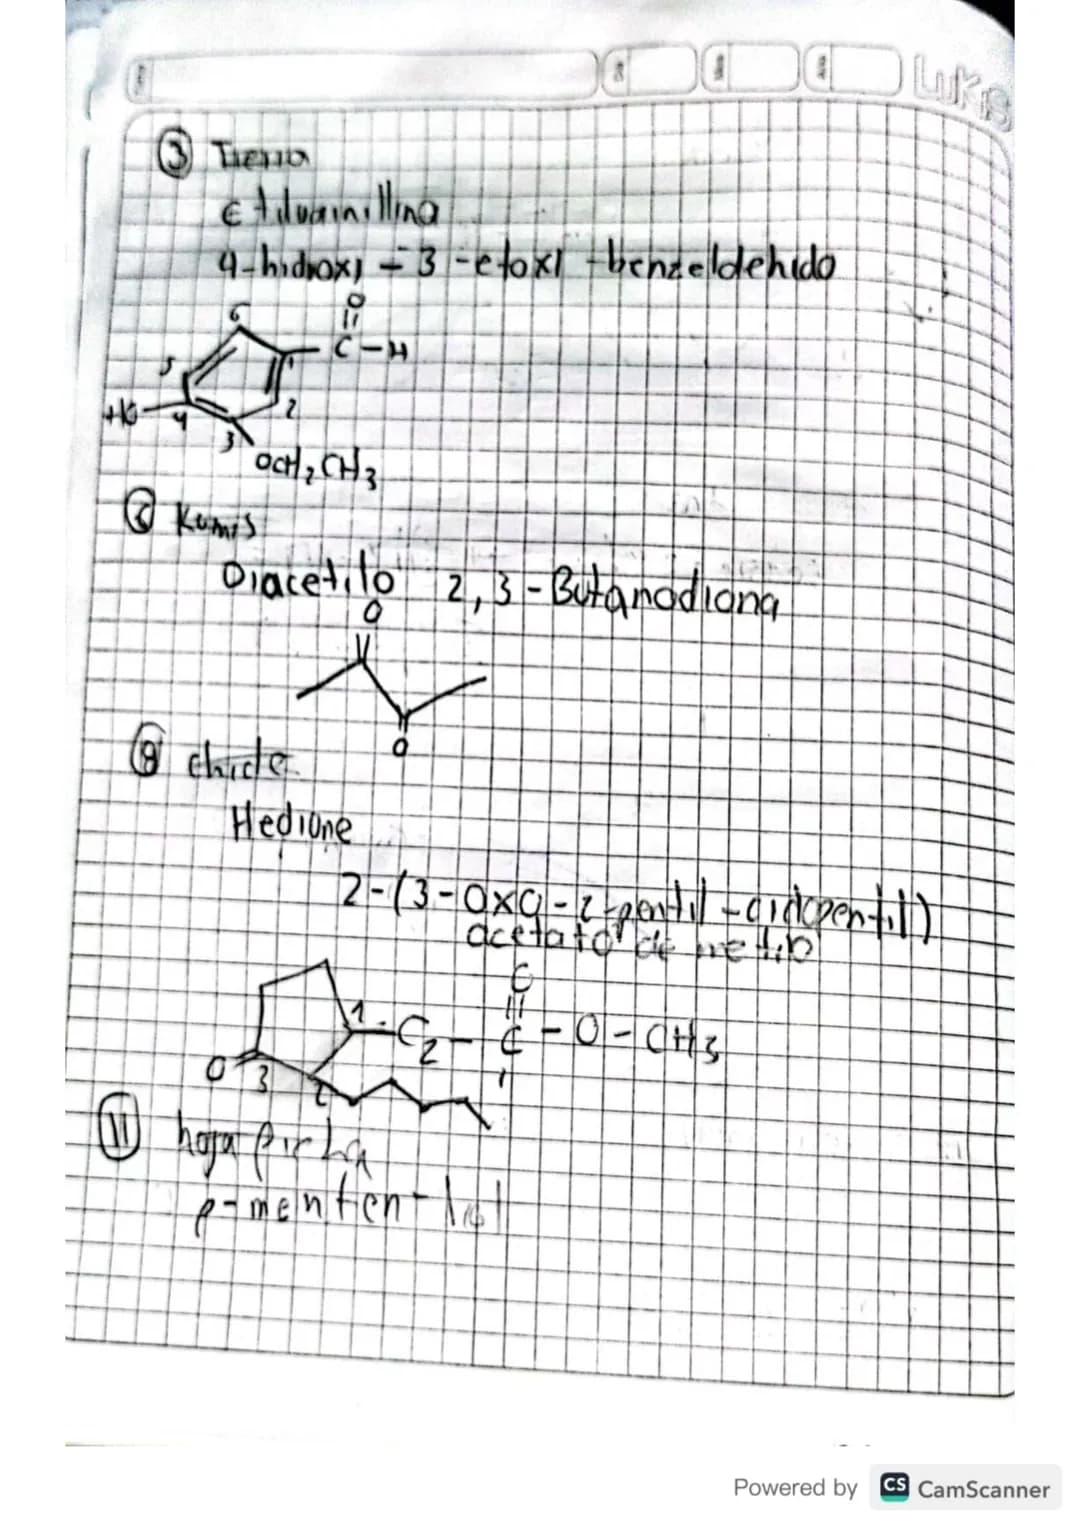 Lukis
③ Tierra
Etilvainillina
4-hidroxi-3-etoxi-benzeldehido
O
C-H
6
5
1
HO
4
2
3
OCH₂CH₃
Kumis
Diacetilo 2,3-Butanodiona
O
O
⑧ chicle
Hedione
2-(3-Oxa-2-pentil-ciclopentil)
acetato de metilo
1-C₂-C-O-CH₃
O 3
2
⑪ hoja
p-menten-1ol
Powered by CS CamScanner